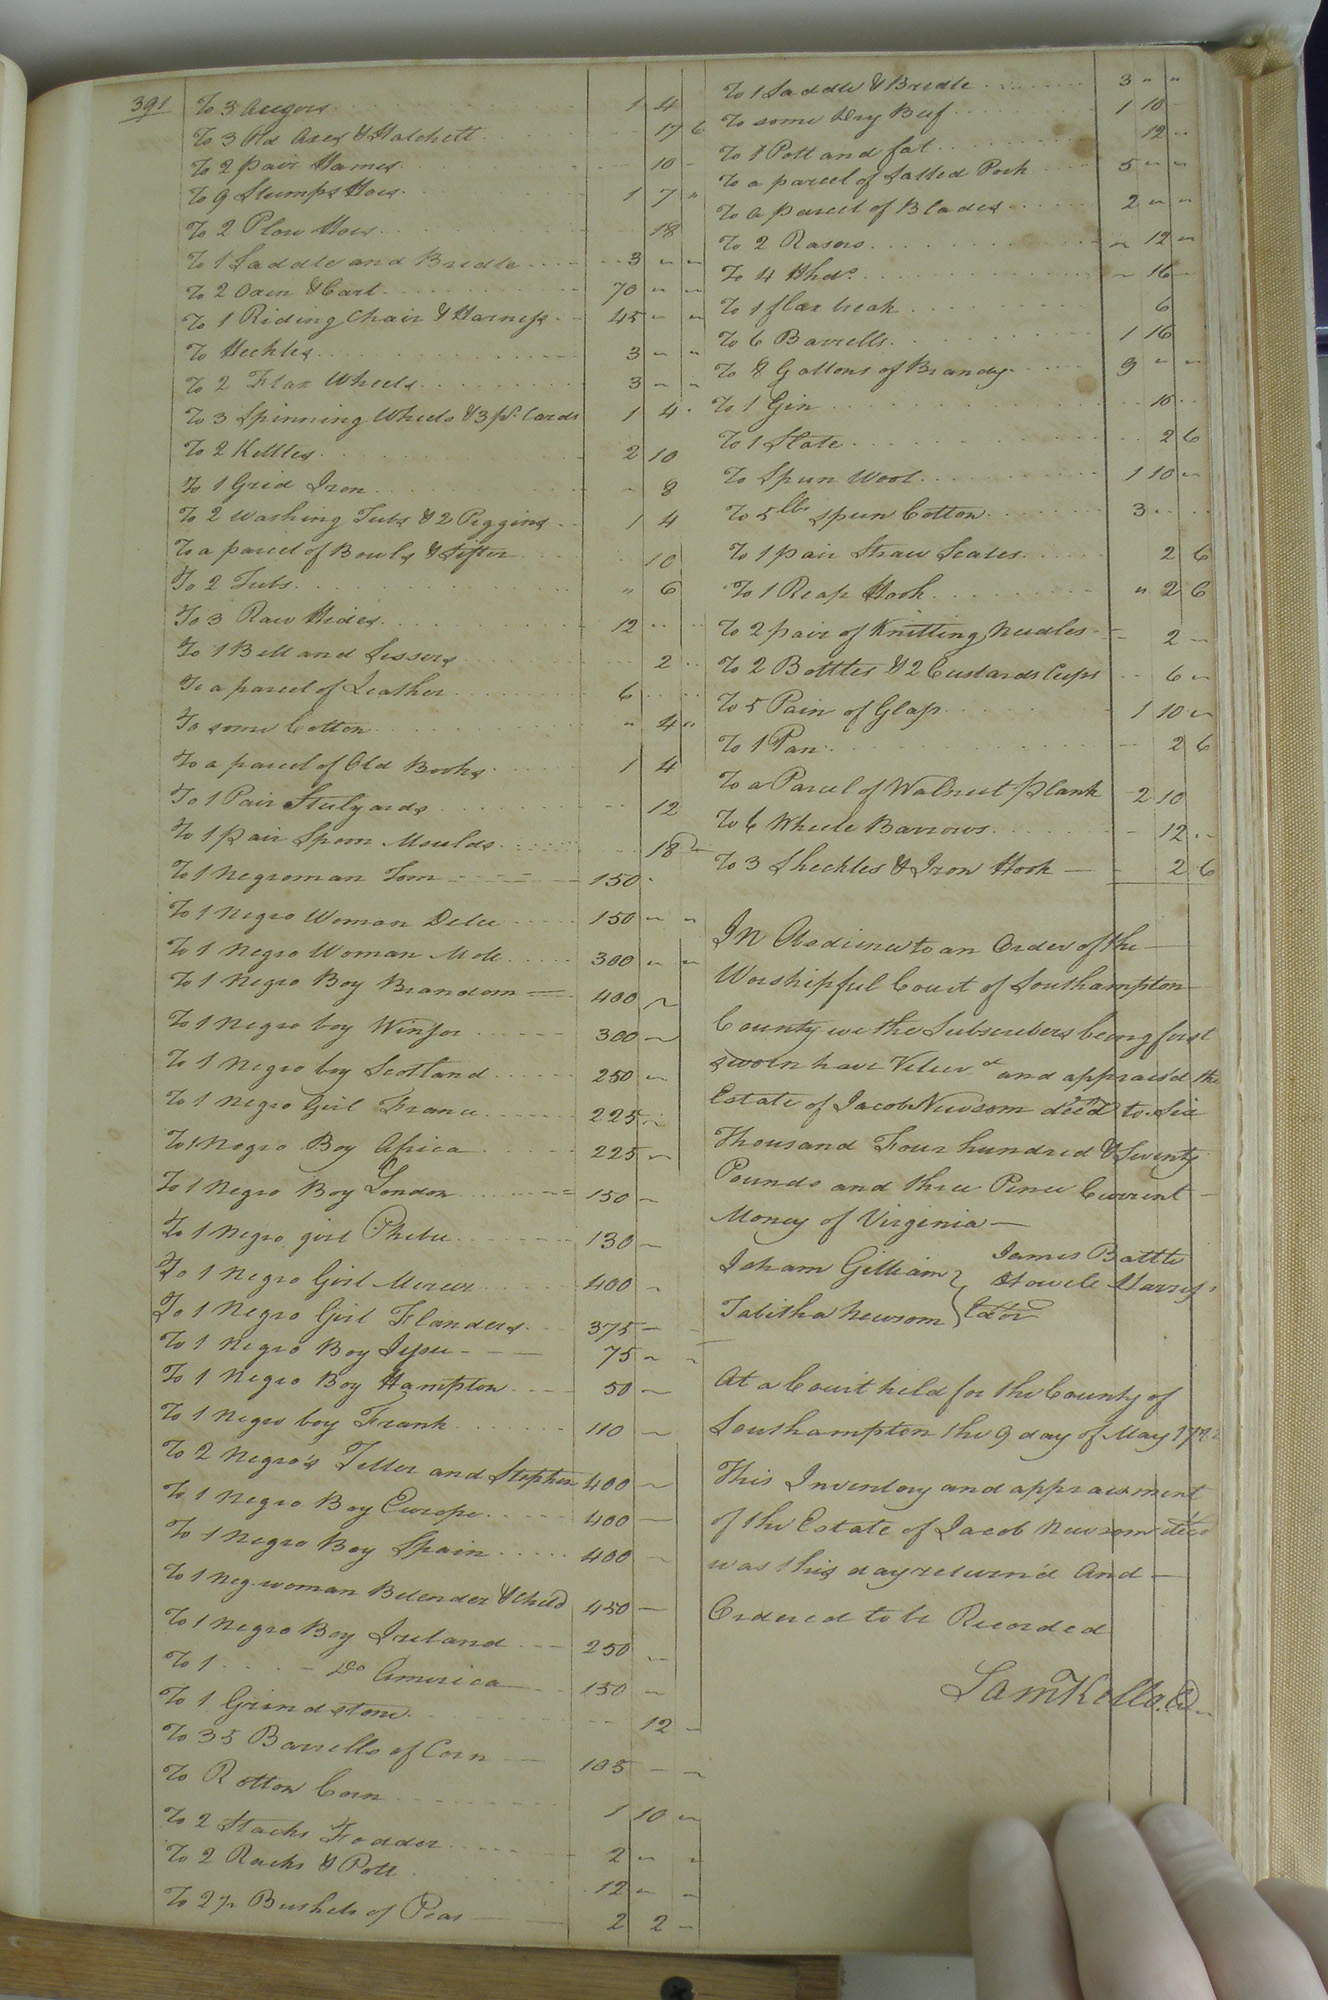 391
To 3 Augors 1 4
To 3 Old Axes & Hatchett 17 6
To 2 pair Hames 10 -
To 9 Stumps Hoes 1 7 "
To 2 Plow Hoes 18
To 1 Saddle and Bridle 3 " "
To 2 Oxen & Cart 70 " "
To 1 Riding Chair & Harness 45 " "
To Heckles 3 " "
To 2 Flax Wheels 3 " "
To 3 Spinning Wheels & 3 pr. Cards 1 4
To 2 Kettles 2 10
To 1 Grid Iron 8
To 2 Washing Tubs & 2 Piggins 1 4
To a parcel of Bowls & Sifter 10
To 2 Tubs " 6
To 3 Raw Hides 12
To 1 Bell and Sissors 2
To a parcel of Leather 6
To some Cotton " 4 "
To a parcel of Old Books 1 4
To 1 Pair Stilyards 12
To 1 pair Spoon Moulds 18
To 1 Negroman Tom 150
To 1 Negro Woman 150 " "
To 1 Negro Woman Mole 300 " "
To 1 Negro Boy Brandom 400 "
To 1 Negro boy Winsor 300 "
To 1 Negro boy Scotland 250 "
To 1 Negro Girl France 225
To 1 Negro Boy Africa 225 "
To 1 Negro Boy London 150 -
To 1 Negro girl Phebe 130 -
To 1 Negro Girl 400 -
To 1 Negro Girl Flanders 375 -
To 1 Negro Boy 75 " "
To 1 Negro Boy Hampton 50 "
To 1 Negro boy Frank 110 -
To 2 Negro's and Stephen 400 "
To 1 Negro Boy Europe 400 -
To 1 Negro Boy Spain 400 -
To 1 Neg. woman Belender & Child 450 -
To 1 Negro Boy Ireland 250 "
To 1 Do America 150 "
To 1 Grindstone 12 -
To 35 Barrells of Corn 105 - "
To Rotton Corn 1 10 "
To 2 Stacks Fodder 2 " "
To 2 Racks & Pott 12 " "
To 2 Bushels of Peas 2 2 -
To 1 Saddle & Bridle 3 " "
To some Dry Beef 1 10 -
To 1 Pott and fat 12 "
To a parcel of Salted Pork 5 " "
To a parcel of Blades 2 " "
To 2 Rasors " 12 "
To 4 Hhds 16 -
To 1 flax break 6
To 6 Barrells 1 16
To 8 Gallons of Brandy 9 " "
To 1 Gin
To 1 Slate 2 6
To Spun Wool 1 10 "
To 5 lbs spun Cotton 3
To 1 pair Straw Scales 2 6
To 1 Reap Hook " 2 6
To 2 pair of Knitting Needles 2 -
To 2 Bottles & 2 Custards Cups 6 "
To 5 Pain of Glass 1 10 "
To 1 Pan 2 6
To a Parcel of Walnut Plank 2 10
To 6 Wheele Barrows 12
To 3 Sheckles & Iron Hook 2 6
In Obedience to an Order of the
Worshipful Court of Southampton
County we the Subscribers being first
sworn have and appraisd the
Estate of Jacob Newsom dec'd to Six
Thousand Four hundred & Seventy
Pounds and three Pence Current
Money of Virginia
James Battle
Isham Gilliam Howell Harriss
Tabitha Newsom
At a Court held for the County of
Southampton the 9 day of May
This Inventory and appraisment
of the Estate of Jacob Newsom dec'd
was this day return'd And
Ordered to be Recorded
Sam Kello. Ck